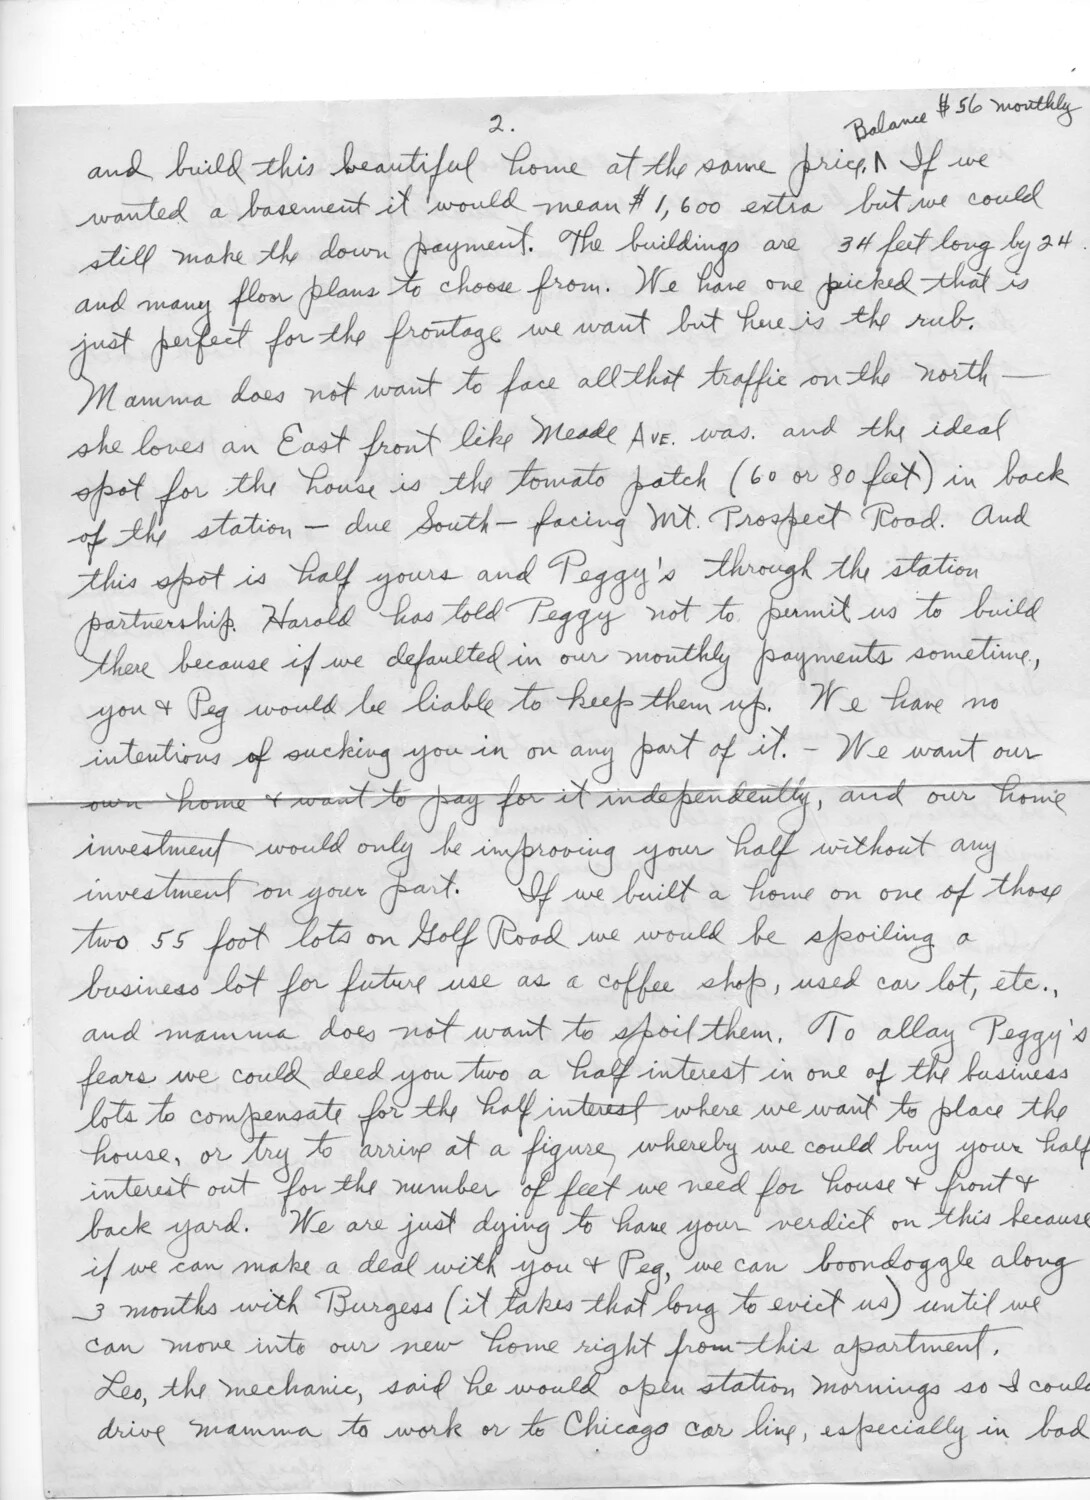 2.
Balance $56 monthly
and build this beautiful home at the same price.^ If we
wanted a basement it would mean $1,600 extra but we could
still make the down payment. The buildings are 34 feet long by 24.
and many floor plans to choose from. We have one picked that is
just perfect for the frontage we want but here is the rub.
Mamma does not want to face all that traffic on the north —
she loves an East front like Meade AVE. was. and the ideal
spot for the house is the tomato patch (60 or 80 feet) in back
of the station — due South — facing Mt. Prospect Road. And
this spot is half yours and Peggy's through the station
partnership. Harold has told Peggy not to permit us to build
there because if we defaulted in our monthly payments sometime,
you & Peg would be liable to keep them up. We have no
intentions of sucking you in on any part of it. - We want our
own home & want to pay for it independently, and our home
investment would only be improving your half without any
investment on your part. If we built a home on one of those
two 55 foot lots on Golf Road we would be spoiling a
business lot for future use as a coffee shop, used car lot, etc.,
and mamma does not want to spoil them. To allay Peggy's
fears we could deed you two a half interest in one of the business
lots to compensate for the half interest where we want to place the
house, or try to arrive at a figure whereby we could buy your half
interest out for the number of feet we need for house & front &
back yard. We are just dying to have your verdict on this because
if we can make a deal with you & Peg, we can boondoggle along
3 months with Burgess (it takes that long to evict us) until we
can move into our new home right from this apartment.
Leo, the mechanic, said he would open station mornings so I could
drive mamma to work or to Chicago car line, especially in bad